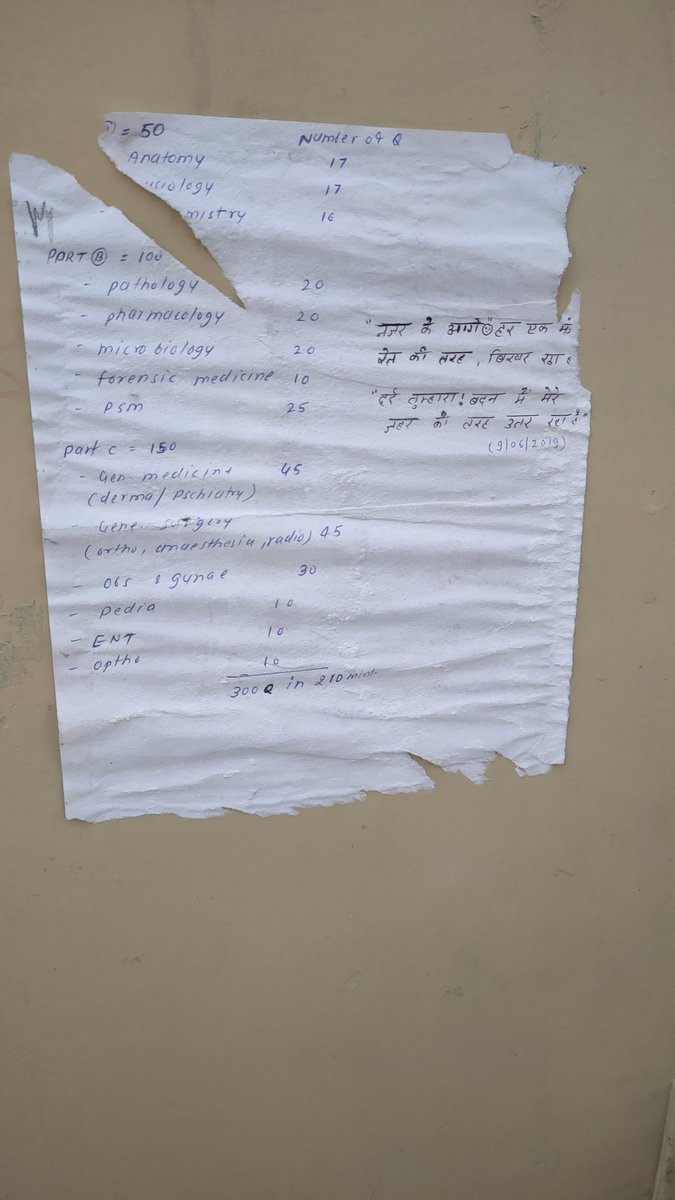 = 50 Number of Q
Anatomy 17
iology 17
mistry 16
PART B = 100
- pathology 20
- pharmacology 20
- microbiology 20
- forensic medicine 10
- PSM 25
"नजर के आगे हर एक मं
रेत की तरह, बिखर रहा ह
"दर्द तुम्हारा! बदन में मेरे
जहर की तरह उतर रहा है"
(9/06/2019)
part c = 150
- Gen. medicine 45
(derma/Pschiatry)
- Gene surgery
(ortho, anaesthesia, radio) 45
- Obs & gynae 30
- pedia 10
- ENT 10
- optho 10
300Q in 210 mint.